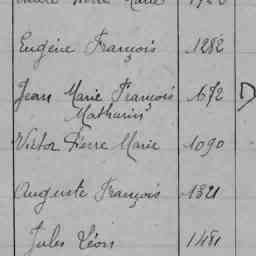 Marie
Eugène François 1282
Jean Marie François 1672
Mathurin
Victor Pierre Marie 1090
Auguste François 1321
Jules Léon 1481